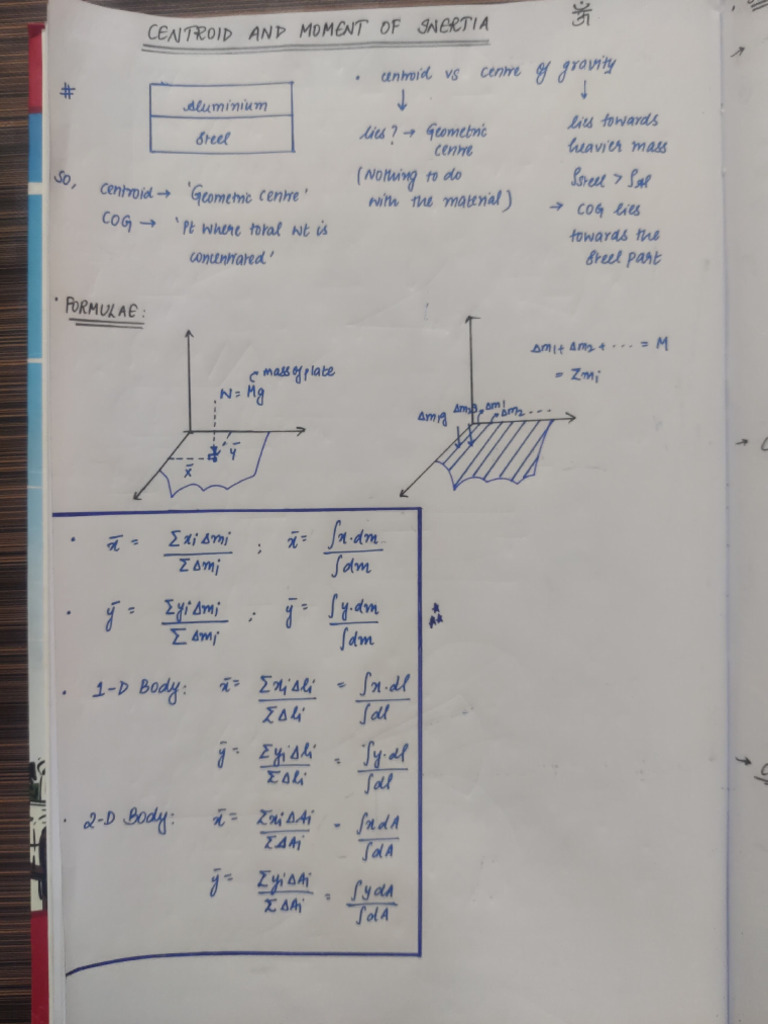 ॐ
CENTROID AND MOMENT OF INERTIA
#
Aluminium
Steel
• centroid vs centre of gravity
↓ ↓
lies? → Geometric centre
(Nothing to do
with the material)
lies towards
heavier mass
ρsteel > ρAl
→ COG lies
towards the
Steel part
So,
Centroid → 'Geometric centre'
COG → 'Pt where total wt is
concentrated'
• FORMULAE:
mass of plate
W = Mg
x̄
ȳ
Δm1 + Δm2 + ... = M
= Σmi
Δm1g Δm2g Δm1
Δm2 ....
• x̄ = Σxi Δmi / ΣΔmi ; x̄ = ∫x.dm / ∫dm
• ȳ = Σyi Δmi / ΣΔmi ; ȳ = ∫y.dm / ∫dm
• 1-D Body: x̄ = Σxi Δli / ΣΔli = ∫x.dl / ∫dl
ȳ = Σyi Δli / ΣΔli = ∫y.dl / ∫dl
• 2-D Body: x̄ = Σxi ΔAi / ΣΔAi = ∫x dA / ∫dA
ȳ = Σyi ΔAi / ΣΔAi = ∫y dA / ∫dA